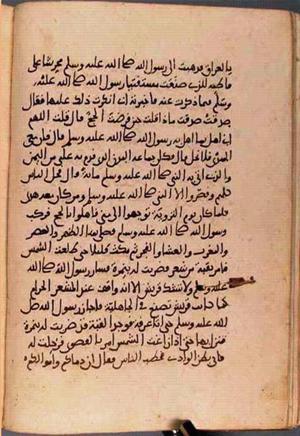 بالعراق فذهبت الى رسول الله صلى الله عليه وسلم محرشا على
فاطمة للذي صنعت مستفتيا رسول الله صلى الله عليه
وسلم فيما ذكرت عنه فاخبرته اني انكرت ذلك عليها فقال
صدقت صدقت ماذا قلت حين فرضت الحج قال قلت اللهم
اني اهل بما اهل به رسول الله صلى الله عليه وسلم قال فان معي
الهدي فلا تحل قال فكان جماعة الهدي الذي قدم به علي من اليمن
والذي اتى به النبي صلى الله عليه وسلم مائة قال فحل الناس
كلهم وقصروا الا النبي صلى الله عليه وسلم ومن كان معه هدي
فلما كان يوم التروية توجهوا الى منى فاهلوا بالحج فركب
رسول الله صلى الله عليه وسلم فصلى بها الظهر والعصر
والمغرب والعشاء والفجر ثم مكث قليلا حتى طلعت الشمس
فامر بقبة من شعر فضربت له بنمرة فسار رسول الله صلى الله
عليه وسلم ولا تشك قريش الا انه واقف عند المشعر الحرام
كما كانت قريش تصنع في الجاهلية فاجاز رسول الله صلى
الله عليه وسلم حتى اتا عرفة فوجد القبة قد ضربت له بنمرة
فنزل بها حتى اذا زاغت الشمس امر بالقصوى فرحلت له
فاتى بطن الوادي فخطب الناس فقال ان دماءكم واموالكم